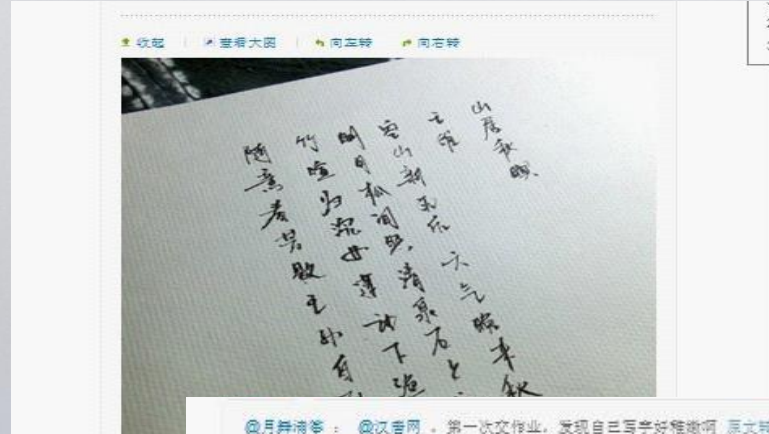 收起 查看大图 向左转 向右转
山居秋暝
王维
空山新雨后 天气晚来秋
明月松间照 清泉石上
竹喧归浣女 莲动下渔
随意春芳歇 王孙自
@月舞滴答 : @汉考网 。第一次交作业，发现自己写字好稚嫩啊 原文转